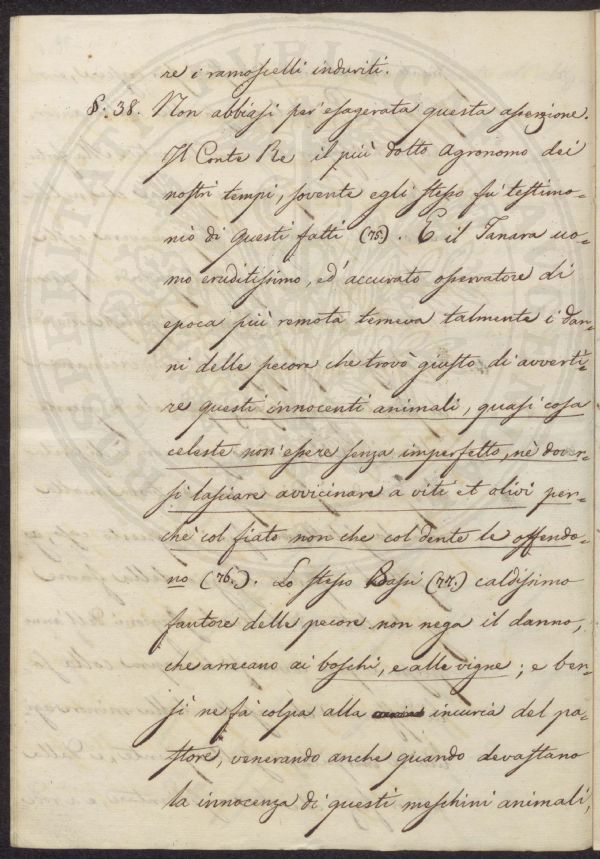 re i ramoscelli induriti.
§. 38. Non abbiasi per esagerata questa asserzione.
Il Conte Re il più dotto agronomo dei
nostri tempi, sovente egli stesso fu testimo-
nio di questi fatti (75.). E il Tanara uo-
mo eruditissimo, ed accurato osservatore di
epoca più remota temeva talmente i dan-
ni delle pecore che trovò giusto di avverti-
re questi innocenti animali, quasi cosa
celeste non essere senza imperfetto, nè dover-
si lasciare avvicinare a viti et olivi per-
chè col fiato non che col dente le offendo-
no (76.). Lo stesso Dassi (77.) caldissimo
fautore delle pecore non nega il danno,
che arrecano ai boschi, e alle vigne; e ben-
sì ne fà colpa alla incuria del pa-
store, venerando anche quando devastano
la innocenza di questi meschini animali,